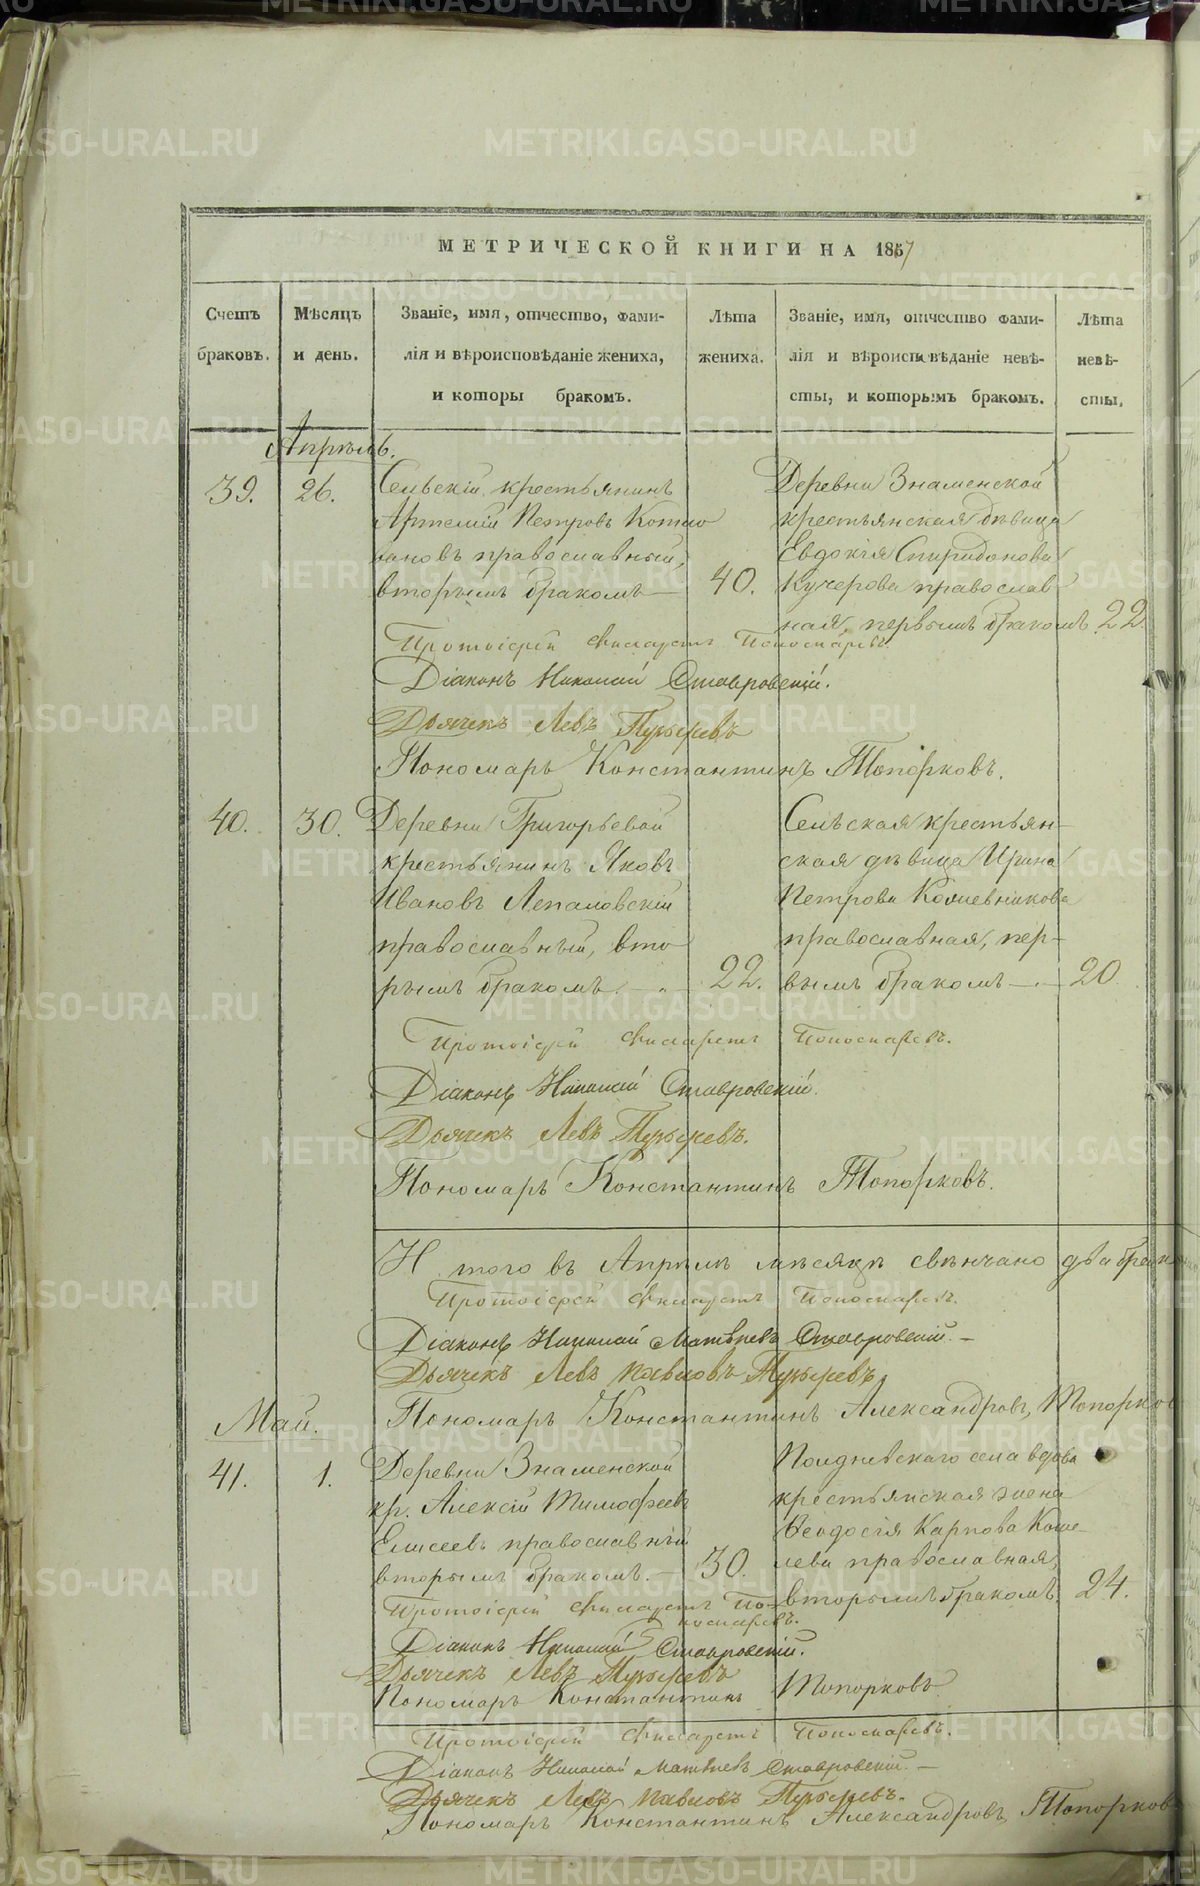 МЕТРИЧЕСКОЙ КНИГИ НА 1857
Счетъ браковъ.
Мѣсяцъ и день.
Званіе, имя, отчество, фами-
лія и вѣроисповѣданіе жениха,
и которы бракомъ.
Лѣта жениха.
Званіе, имя, отчество фами-
лія и вѣроисповѣданіе невѣ-
сты, и которымъ бракомъ.
Лѣта невѣ-
сты.
Апрѣль.
39.
26.
Сельскій крестьянинъ
Артемій Петровъ
православный,
вторымъ бракомъ
40.
Деревни Знаменской
крестьянская дѣвица
Евдокія Спиридонова
Кучерова православ-
ная, первымъ бракомъ.
22
Протоіерей Филаретъ Пономаревъ.
Діаконъ Николай Ставровскій.
Дьячекъ Левъ Пузыревъ
Пономарь Константинъ Топорковъ.
40.
30.
Деревни Григорьевой
крестьянинъ Яковъ
Ивановъ Лепаловскій
православный, вто
рымъ бракомъ.
22.
Сельская крестьян-
ская дѣвица Ирина
Петрова Кожевникова
православная, пер-
вымъ бракомъ
20
Протоіерей Филаретъ Пономаревъ.
Діаконъ Николай Ставровскій.
Дьячекъ Левъ Пузыревъ.
Пономарь Константинъ Топорковъ.
И того въ Апрѣлѣ мѣсяцѣ свѣнчано два брака
Протоіерей Филаретъ Пономаревъ.
Діаконъ Николай Матвѣевъ Ставровскій.
Дьячекъ Левъ Павловъ Пузыревъ
Пономарь Константинъ Александровъ Топорков
Май.
41.
1.
Деревни Знаменской
кр. Алексій Тимофеевъ
Елисеевъ православный
вторымъ бракомъ.
30.
Полдневскаго села вдова
крестьянская жена
Феодосія Карпова Коше-
лева православная,
вторымъ бракомъ.
24.
Протоіерей Филаретъ По-
номаревъ.
Діаконъ Николай Ставровскій.
Дьячекъ Левъ Пузыревъ
Пономарь Константинъ Топорковъ
Протоіерей Филаретъ Пономаревъ.
Діаконъ Николай Матвѣевъ Ставровскій.
Дьячекъ Левъ Павловъ Пузыревъ.
Пономарь Константинъ Александровъ Топорков
METRIKI.GASO-URAL.RU